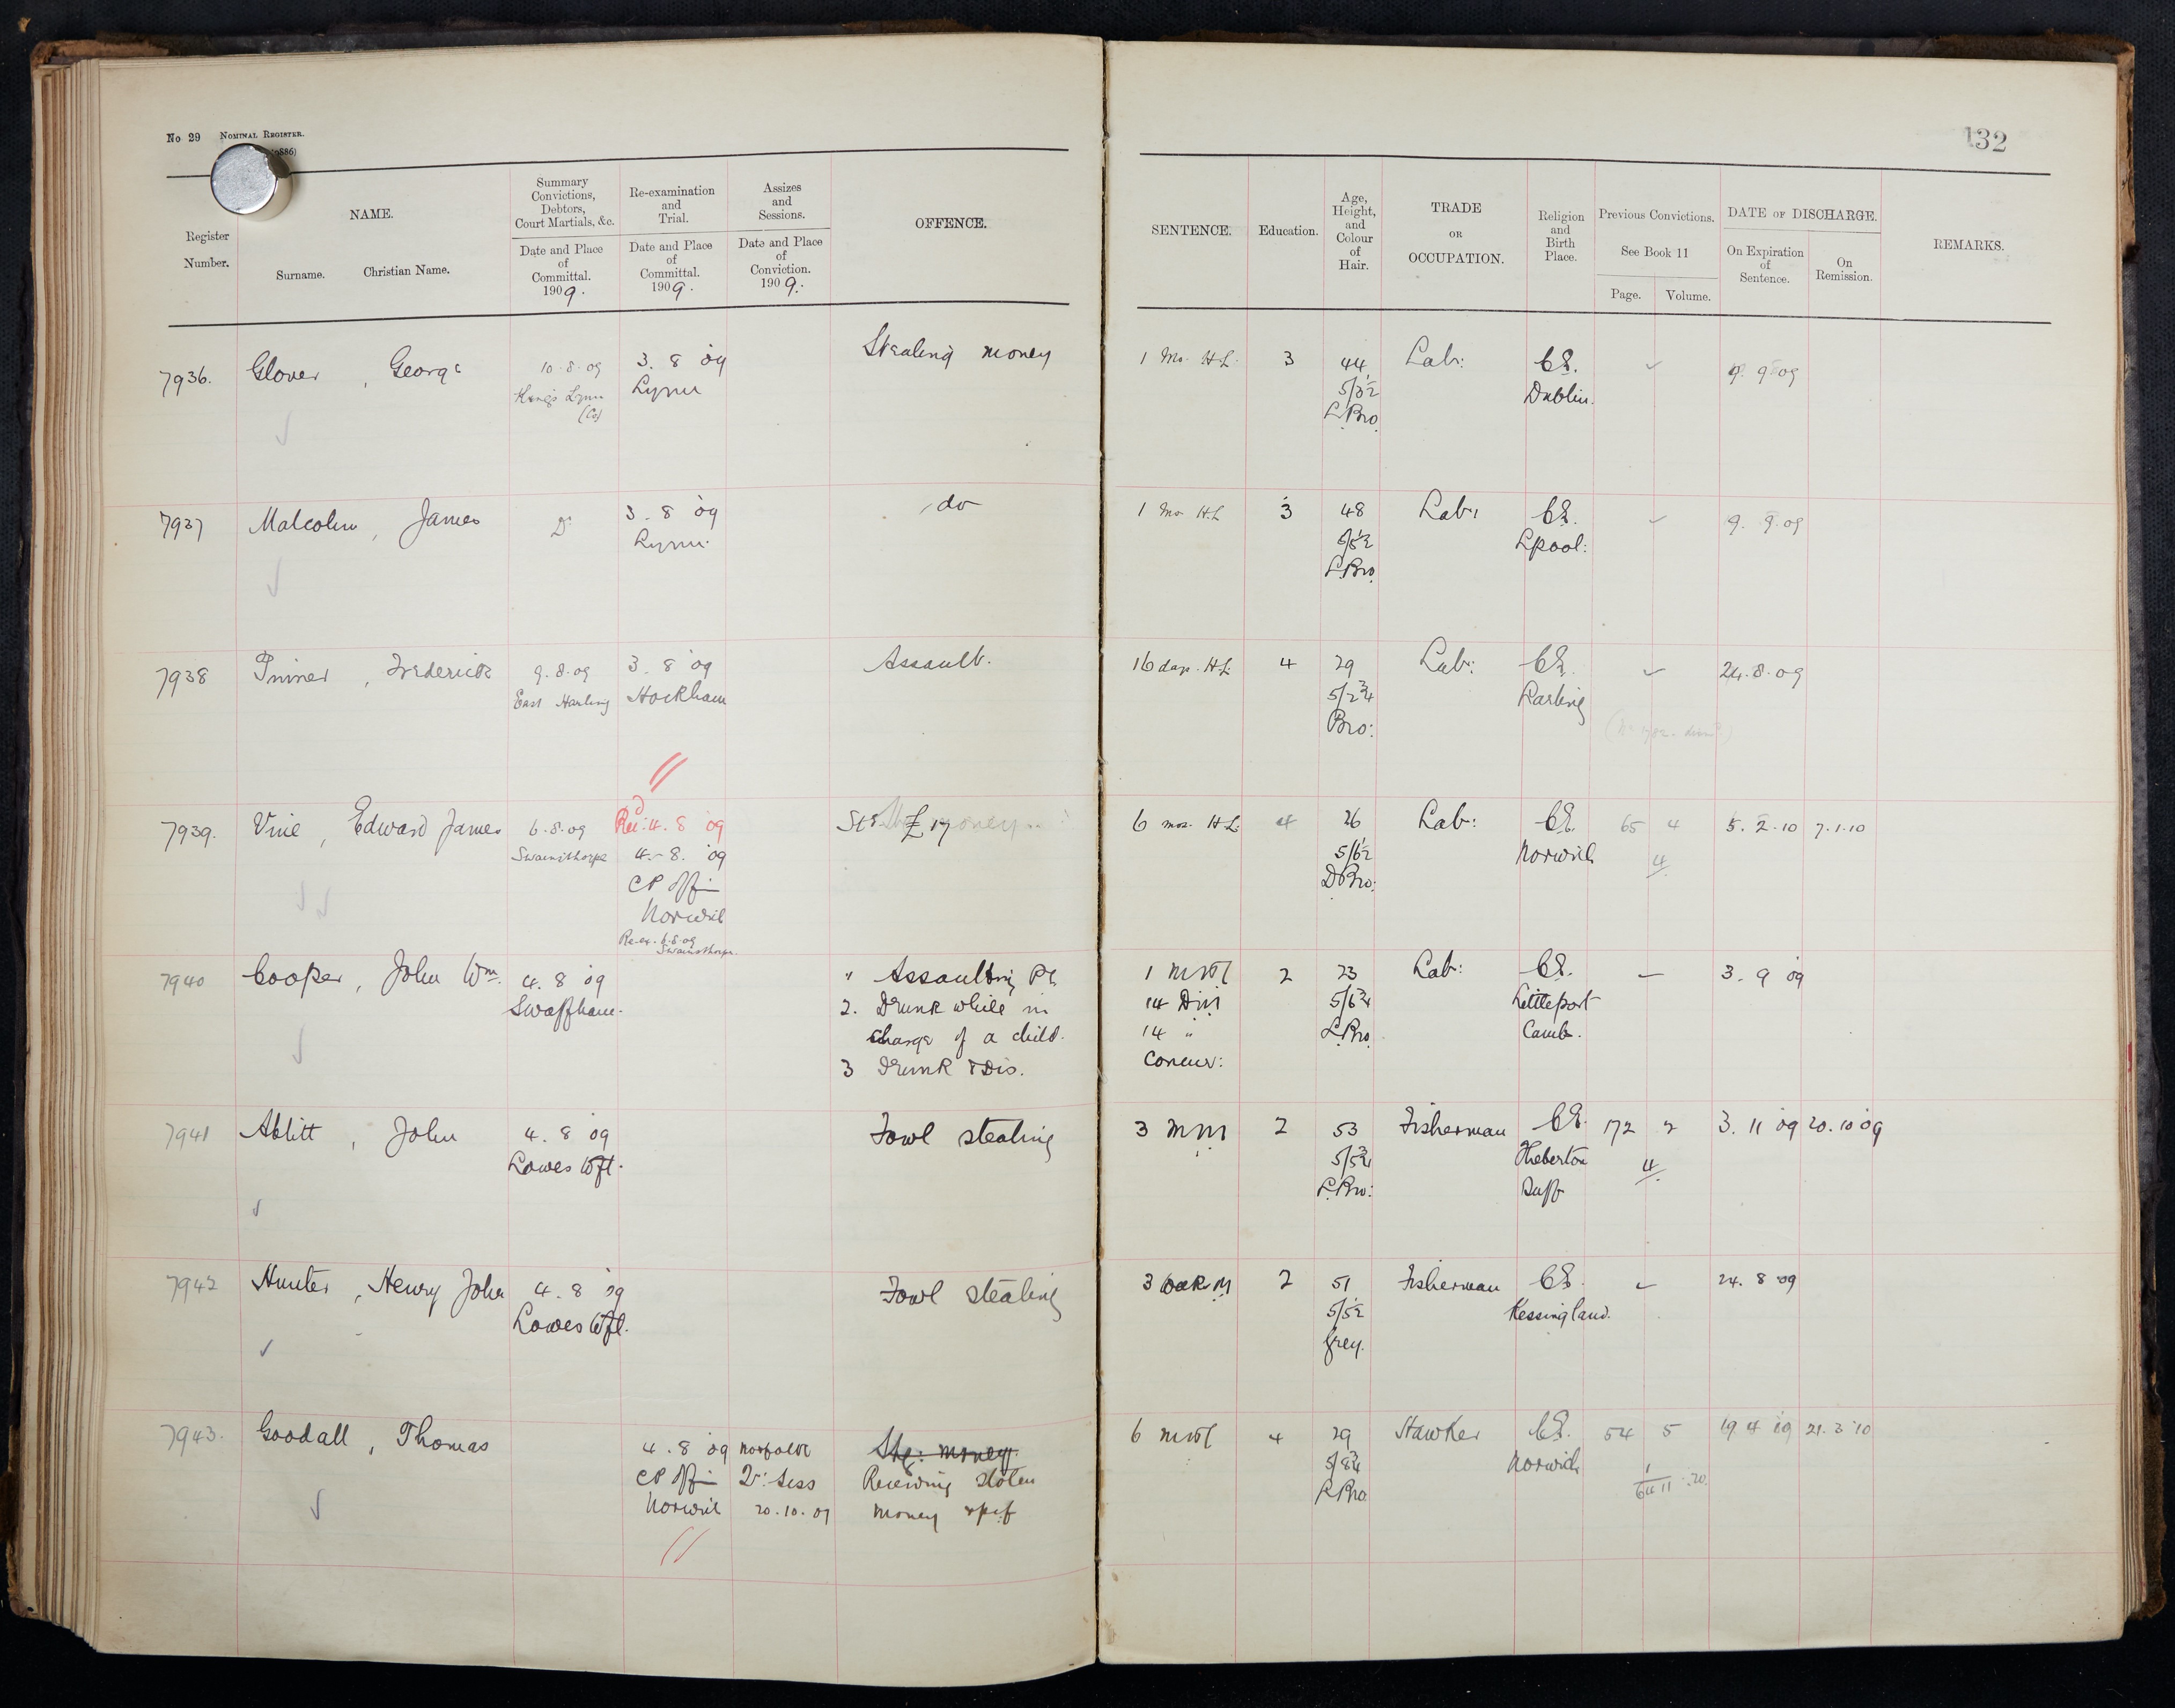 No 29 NOMINAL REGISTER.
132
Register Number.
NAME.
Surname. Christian Name.
Summary Convictions, Debtors, Court Martials, &c.
Date and Place of Committal. 1909.
Re-examination and Trial.
Date and Place of Committal. 1909.
Assizes and Sessions.
Date and Place of Conviction. 1909.
OFFENCE.
SENTENCE.
Education.
Age, Height, and Colour of Hair.
TRADE OR OCCUPATION.
Religion and Birth Place.
Previous Convictions.
See Book 11
Page. Volume.
DATE OF DISCHARGE.
On Expiration of Sentence.
On Remission.
REMARKS.
7936. Glover, George 10.8.09 3.8.09 Stealing money 1 Mo. H.L. 3 44 Lab: CE. 9.9.09
Kings Lynn Lynn 5/3½ Dublin.
(Co) L.Bro.
7937 Malcolm, James Do 3.8.09 do 1 Mo H.L 3 48 Lab: CE. 9.9.09
Lynn. 5/5½ Lpool:
L.Bro.
7938 Frederick 9.8.09 3.8.09 Assault. 16 days. H.L. 4 29 Lab: CE. 24.8.09
East Harling Hockham 5/2¾ Larling
Bro:
7939. Vine, Edward James 6.8.09 Rec: 4.8.09 £17 6 mos. H.L. 4 26 Lab: CE. 65 4 5.2.10 7.1.10
Swainsthorpe 4.8.09 5/6½ Norwich 4
CP Offi D Bro:
Norwich
Re-ex. 6.8.09
Swainsthorpe.
7940 Cooper, John Wm. 4.8.09 " Assaulting PC 2 23 Lab: CE. — 3.9.09
Swaffham. 2. Drunk while in 14 5/6¾ Littleport
charge of a child. 14 " L.Bro. Camb.
3 Drunk & Dis. Concur:
7941 Ablitt, John 4.8.09 Fowl stealing 3 2 53 Fisherman CE. 172 2 3.11.09 20.10.09
Lowestoft. 5/5¾ Theberton 4
L.Bro: Suff
7942 Hunter, Henry John 4.8.09 Fowl stealing 3 2 51 Fisherman CE. 24.8.09
Lowestoft. 5/5½ Kessingland.
Grey.
7943. Goodall, Thomas 4.8.09 Norfolk Stg: money. 6 4 29 Hawker CE. 54 5 19.4.10 21.3.10
CP Offi Qr: Sess Receiving stolen 5/8¾ Norwich
Norwich 20.10.09 money